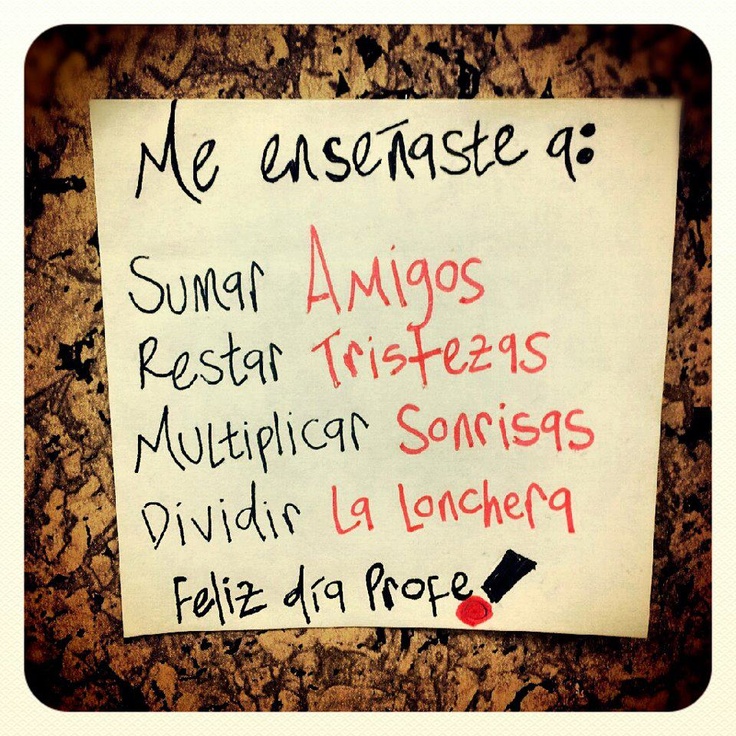 Me enseñaste a:
Sumar Amigos
Restar Tristezas
Multiplicar Sonrisas
Dividir La Lonchera
Feliz día Profe!